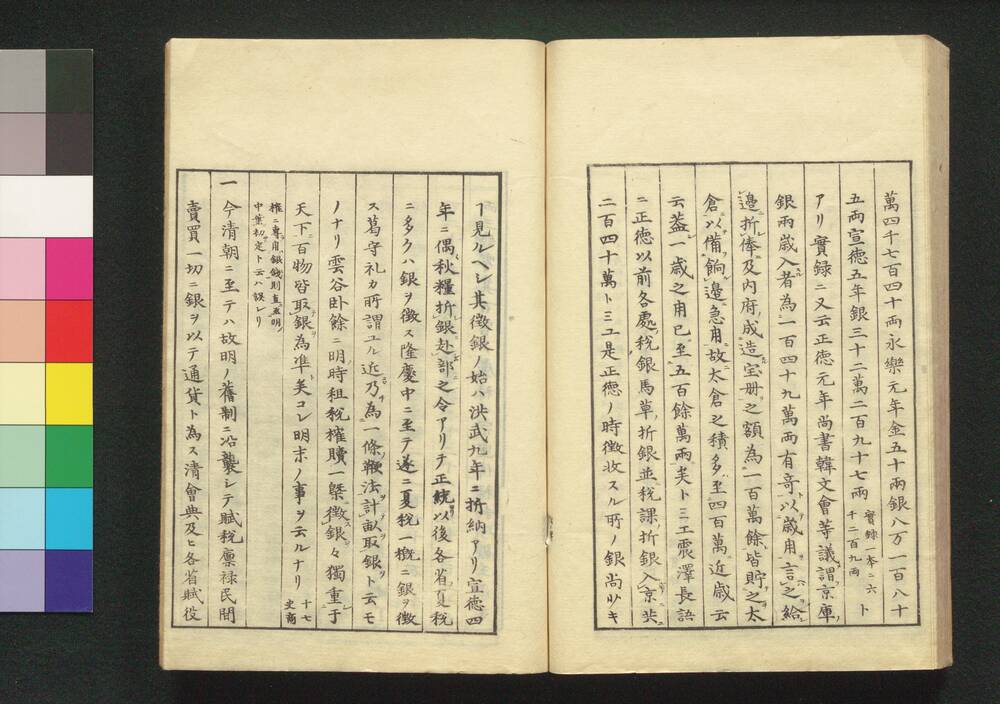 萬四千七百四十両永樂元年金五十両銀八万一百八十
五両宣徳五年銀三十二萬二百九十七両 實録一本ニ六千二百九両 ト
アリ實録ニ又云正徳元年尚書韓文會等議謂京庫
銀両歳入者為一百四十九萬両有奇以歳用言之給
邉折俸及内府成造宝册之額為一百萬餘皆貯之太
倉以備餉邉急用故太倉之積多至四百萬近歳云
云葢一歳之用已至五百餘萬両矣トミエ震澤長語
ニ正徳以前各處税銀馬草折銀並税課折銀入京共
二百四十萬トミユ是正徳ノ時徴收スル所ノ銀尚少キ
ヿ見ルヘレ其徴銀ノ始ハ洪武九年ニ折納アリ宣徳四
年ニ偶秋糧折銀赴部之令アリテ正統以後各省夏税
ニ多クハ銀ヲ徴ス隆慶中ニ至テ遂ニ夏税一概ニ銀ヲ徴
ス葛守礼カ所謂ユル近乃為一條鞭法計畝取銀ト云モ
ノナリ雲谷卧餘ニ明時租税榷贖一槩徴銀々獨重于
天下百物皆取銀為準矣コレ明末ノ事ヲ云ルナリ 十七史商
榷ニ専用銀錢則直至明
中葉初定ト云ハ誤レリ
一今清朝ニ至テハ故明ノ舊制ニ沿襲レテ賦税禀禄民間
賣買一切ニ銀ヲ以テ通貨ト為ス清會典及ヒ各省賦役